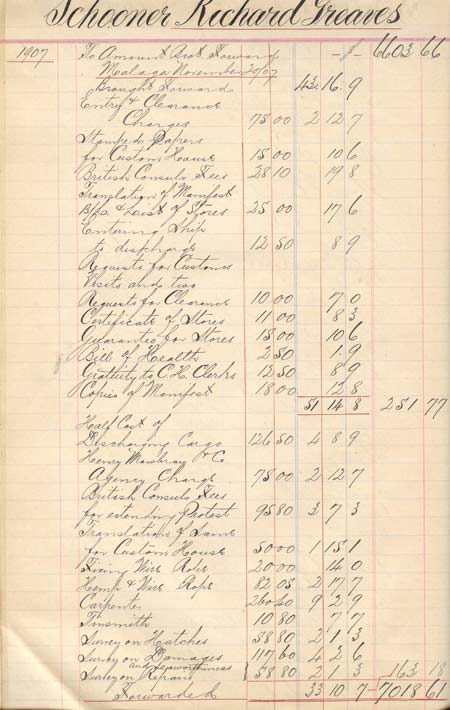 Schooner Richard Greaves
1907 To Amount Brot Forward - 1 - 6603 66
Malaga November 20/07
Brought Forward 43 16 9
Entry & Clearance
Charges 75 00 2 12 7
Stamped Papers
for Custom House 15 00 10 6
British Consuls Fees 28 10 19 8
Translation of Manifest
B/L & List of Stores 25 00 17 6
Entering Ship
to discharge 12 50 8 9
Requests for Customs
Visits and two
Requests for Clearance 10 00 7 0
Certificate of Stores 11 00 8 3
Guarantee for Stores 15 00 10 6
Bill of Health 2 50 1 9
Gratuity to C.H. Clerks 12 50 8 9
Copies of Manifest 18 00 12 8
51 14 8 251 77
Half Cost of
Discharging Cargo 126 50 4 8 9
Henry Mowbray & Co
Agency Charge 75 00 2 12 7
British Consuls Fees
for extending Protest 95 80 3 7 3
Translation of Same
for Custom House 50 00 1 15 1
Fixing Wire Rope 20 00 14 0
Hemp & Wire Rope 82 05 2 17 7
Carpenter 260 40 9 2 9
Tinsmith 10 80 7 7
Survey on Hatches 58 80 2 1 3
Survey on Damages 117 60 4 2 6
and seaworthiness
Survey on Repairs 58 80 2 1 3 163 18
Forwarded 33 10 7 - 7018 61